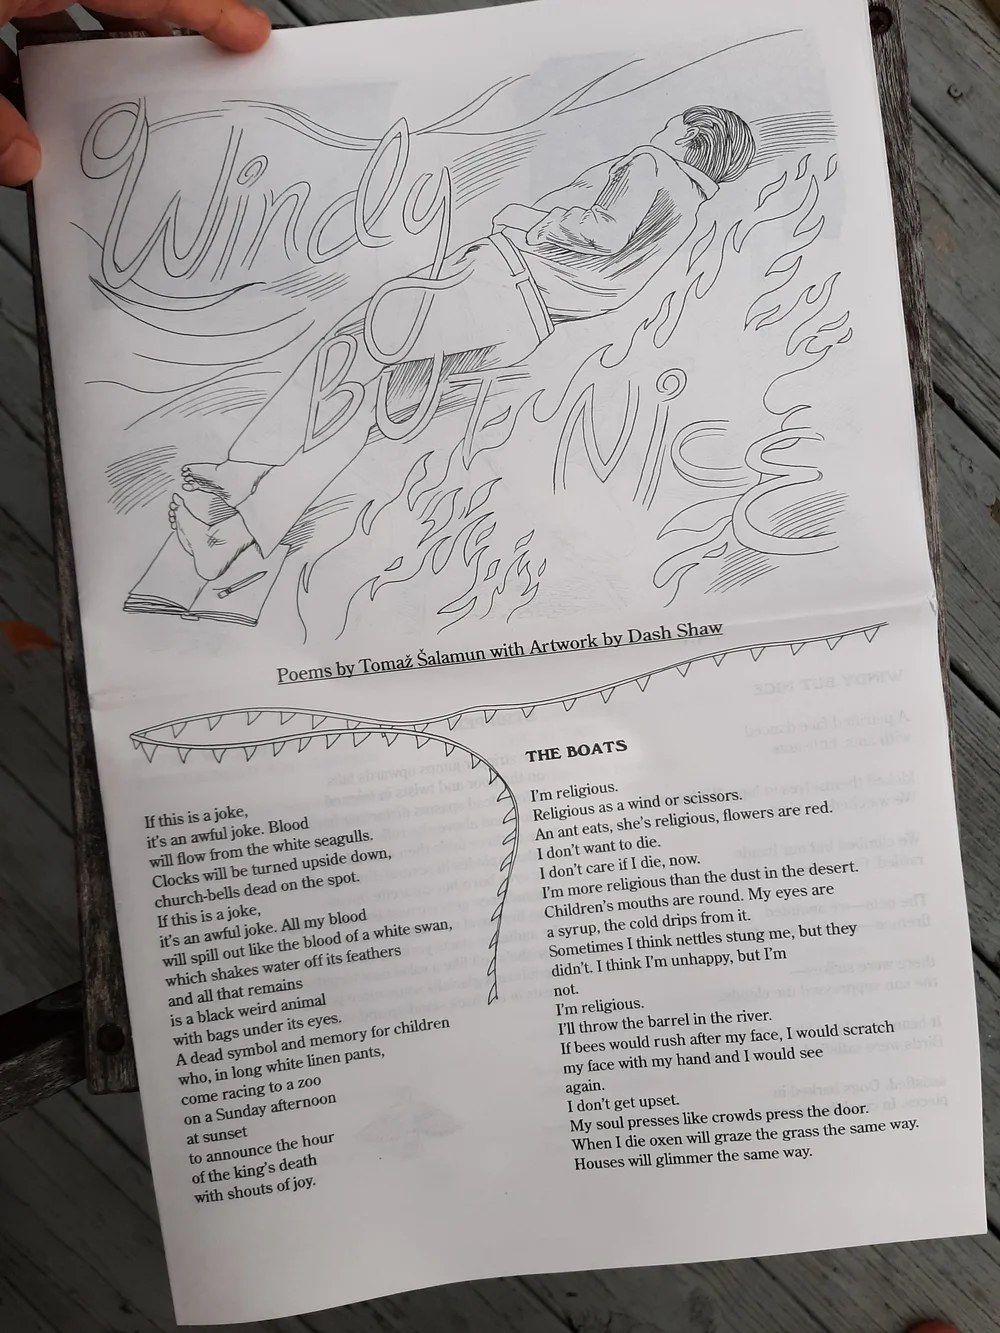 Windy
BUT NicE
Poems by Tomaž Šalamun with Artwork by Dash Shaw
If this is a joke,
it's an awful joke. Blood
will flow from the white seagulls.
Clocks will be turned upside down,
church-bells dead on the spot.
If this is a joke,
it's an awful joke. All my blood
will spill out like the blood of a white swan,
which shakes water off its feathers
and all that remains
is a black weird animal
with bags under its eyes.
A dead symbol and memory for children
who, in long white linen pants,
come racing to a zoo
on a Sunday afternoon
at sunset
to announce the hour
of the king's death
with shouts of joy.
THE BOATS
I'm religious.
Religious as a wind or scissors.
An ant eats, she's religious, flowers are red.
I don't want to die.
I don't care if I die, now.
I'm more religious than the dust in the desert.
Children's mouths are round. My eyes are
a syrup, the cold drips from it.
Sometimes I think nettles stung me, but they
didn't. I think I'm unhappy, but I'm
not.
I'm religious.
I'll throw the barrel in the river.
If bees would rush after my face, I would scratch
my face with my hand and I would see
again.
I don't get upset.
My soul presses like crowds press the door.
When I die oxen will graze the grass the same way.
Houses will glimmer the same way.